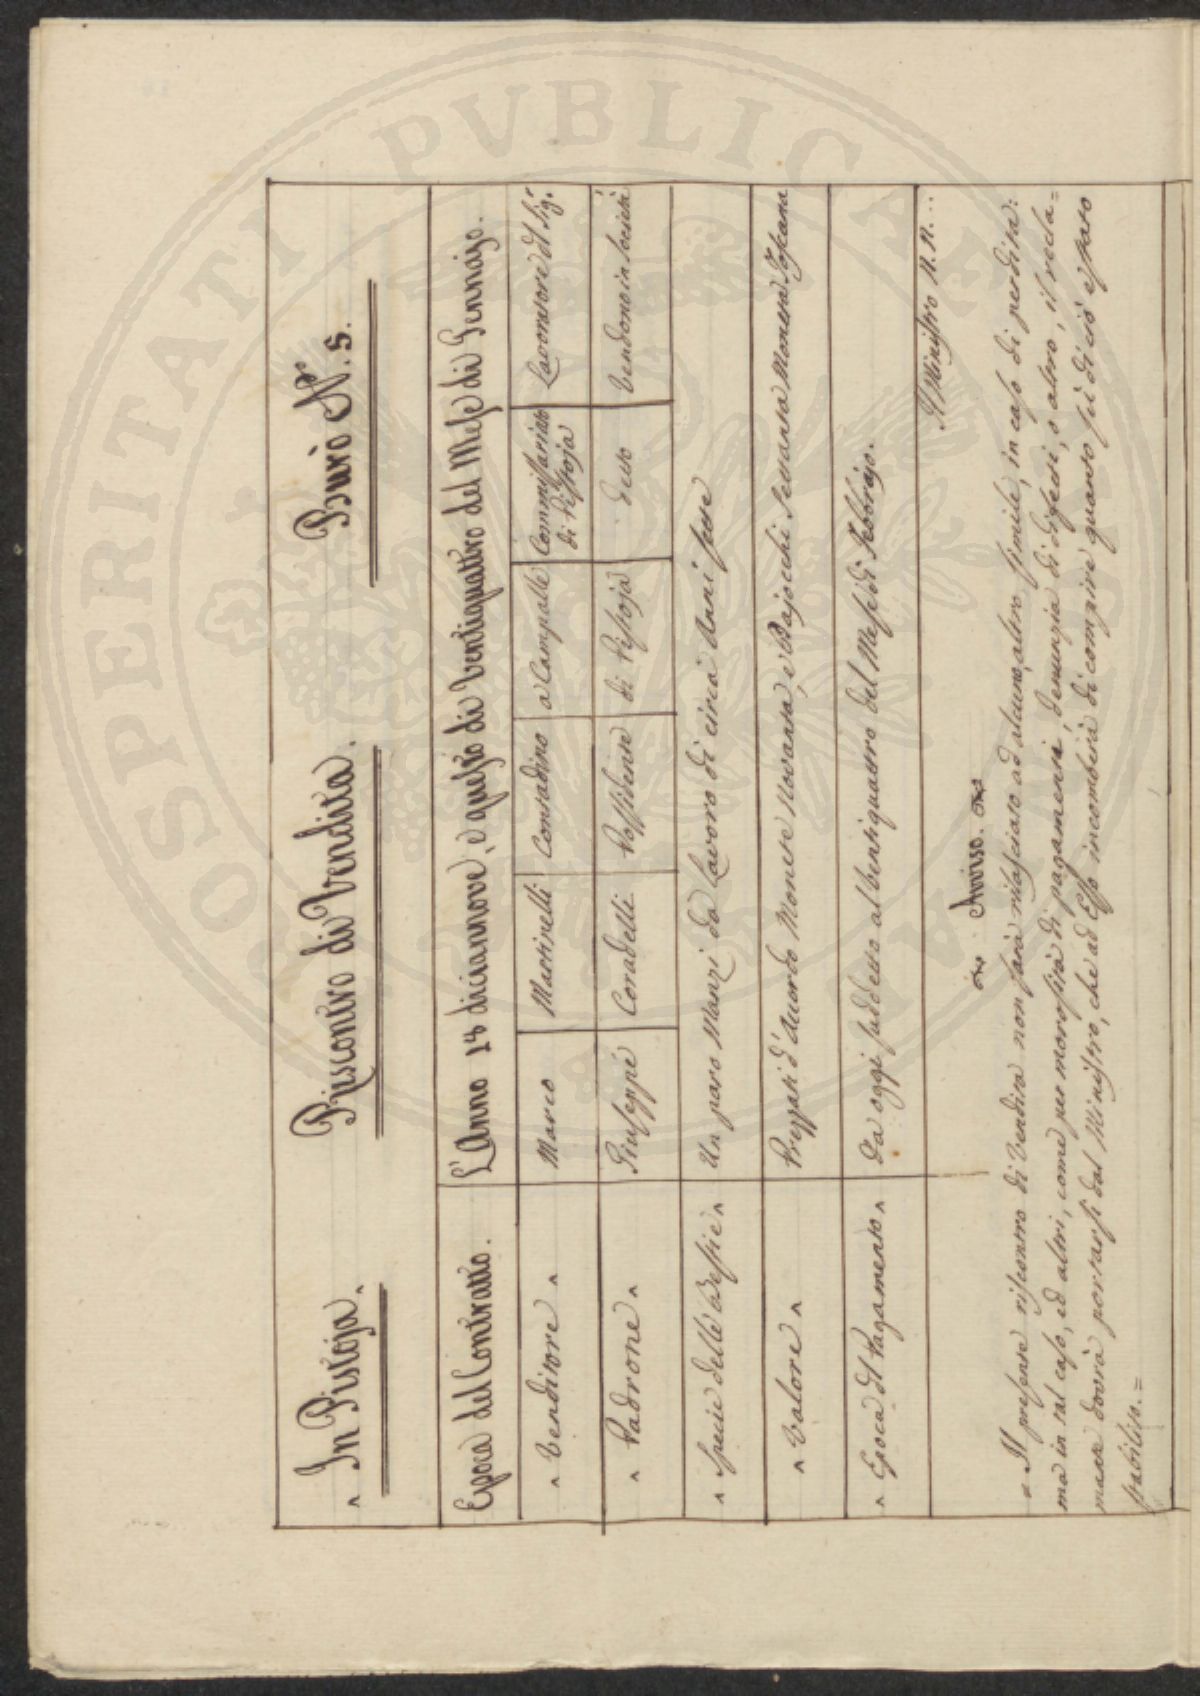 In Pistoja. Riscontro di Vendita. Burò N.º 5.
Epoca del Contratto. L'Anno 18 diciannove, e questo dì Ventiquattro del Mese di Gennajo.
Venditore Marco Martinelli Contadino a Campalle Commissariato di Pistoja Lavoratore d. Sig.r
Padrone Giuseppe Coradelli Possidente di Pistoja detto Vendono in società
Specie delle Bestie Un paro Manzi da Lavoro di circa Anni sette
Valore Prezzati d'Accordo Monete Novanta, e Bajocchi Settanta Moneta Toscana
Epoca del Pagamento Da oggi suddetto al Ventiquattro del Mese di Febbrajo.
Il Ministro N. N. ...
Avviso.
Il presente riscontro di Vendita non sarà rilasciato ad alcuno, altro simile, in caso di perdita:
ma in tal caso, ed altri, come per morosità di pagamenti, denunzia di difetti, o altro, il recla=
mante dovrà portarsi dal Ministro, che ad Esso incomberà di compire quanto su di ciò è stato
stabilito.=
OSPERITATI PVBLICAE A